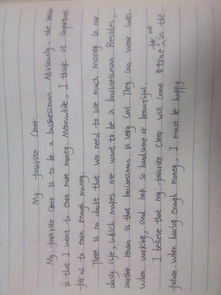 My favorite Career
My favorite career is to be a businessman. Obviously, the reason
is that I want to earn more money. Meanwhile, I think it important
for us to earn enough money.
There is no doubt that we need to use much money in our
daily life, which makes me want to be a businessman. Besides,
another reason is that businessman is very cool. They can wear suits
when working, and look so handsome or beautiful.
I believe that my favorite career will come true to me in the
future. When having enough money, I must be happy.